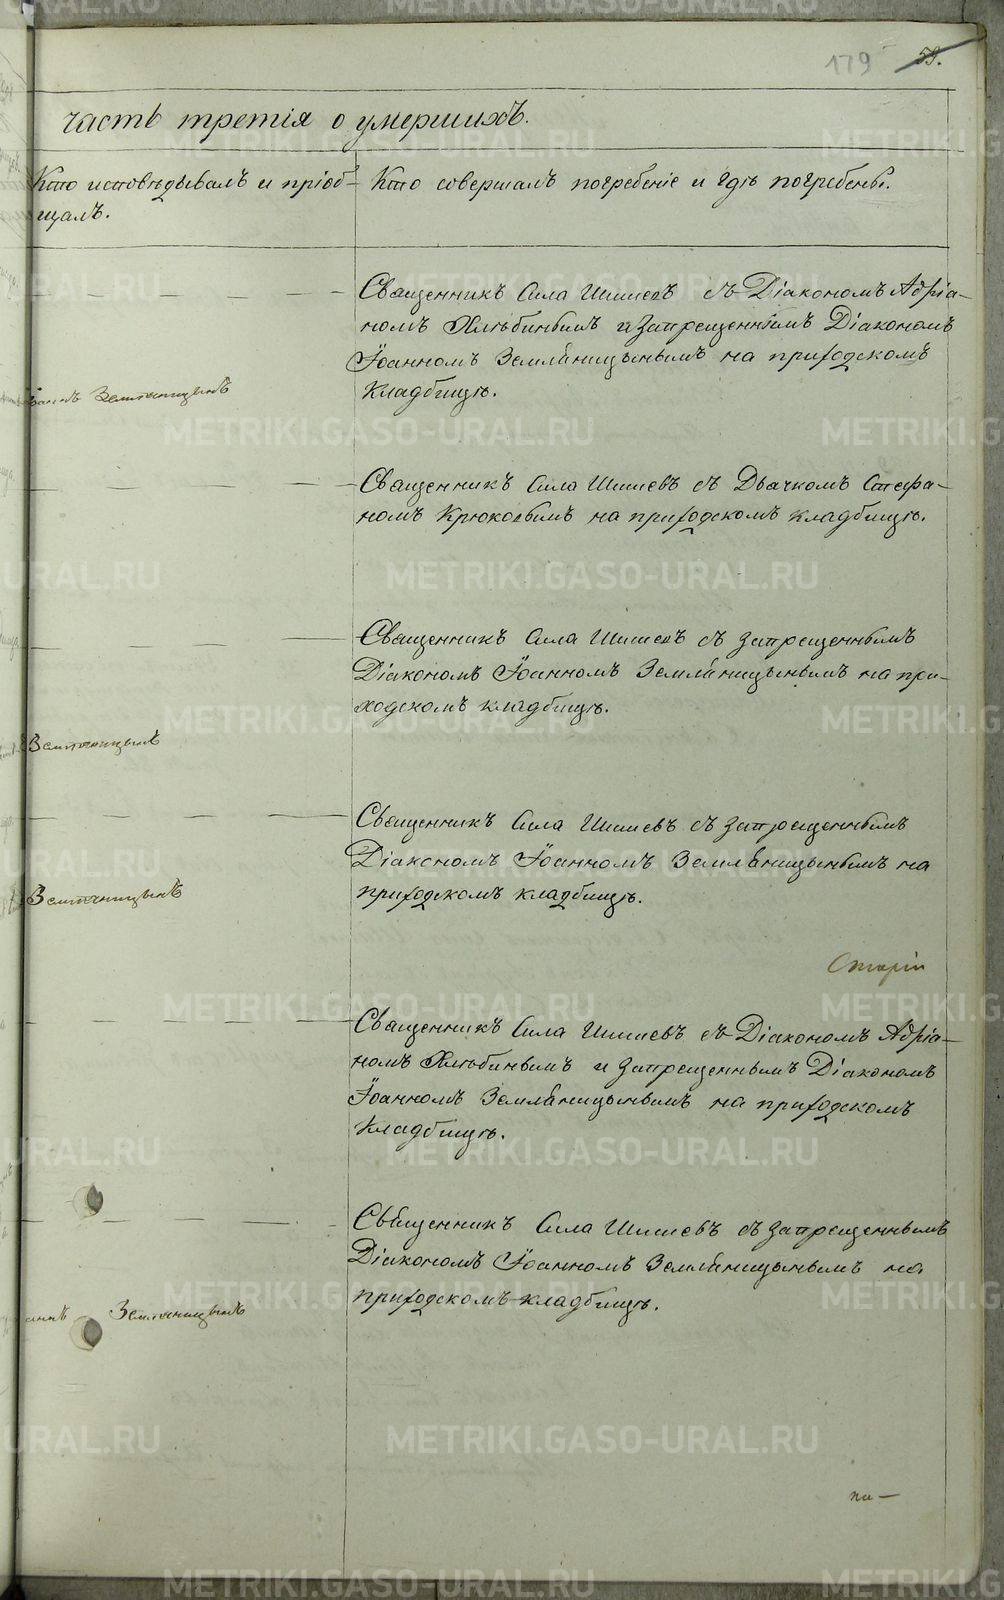 179 59.
часть третія о умершихъ.
Кто исповѣдывалъ и пріоб-
щалъ.
Кто совершалъ погребеніе и гдѣ погребены.
Священникъ Сила Шишевъ съ Діакономъ Адріа-
номъ Хлѣбинымъ и Запрещеннымъ Діакономъ
Іоанномъ Земляницынымъ на приходскомъ
кладбищѣ.
Земляницынъ
Священникъ Сила Шишевъ съ Дьячкомъ Стефа-
номъ Крюковымъ на приходскомъ кладбищѣ.
Священникъ Сила Шишевъ съ запрещеннымъ
Діакономъ Іоанномъ Земляницынымъ на при-
ходскомъ кладбищѣ.
Земляницынъ
Священникъ Сила Шишевъ съ запрещеннымъ
Діакономъ Іоанномъ Земляницынымъ на
приходскомъ кладбищѣ.
Земляницынъ
Священникъ Сила Шишевъ съ Діакономъ Адріа-
номъ Хлѣбинымъ и запрещеннымъ Діакономъ
Іоанномъ Земляницынымъ на приходскомъ
кладбищѣ.
Священникъ Сила Шишевъ съ запрещеннымъ
Діакономъ Іоанномъ Земляницынымъ на
приходскомъ кладбищѣ.
Земляницынъ
METRIKI.GASO-URAL.RU